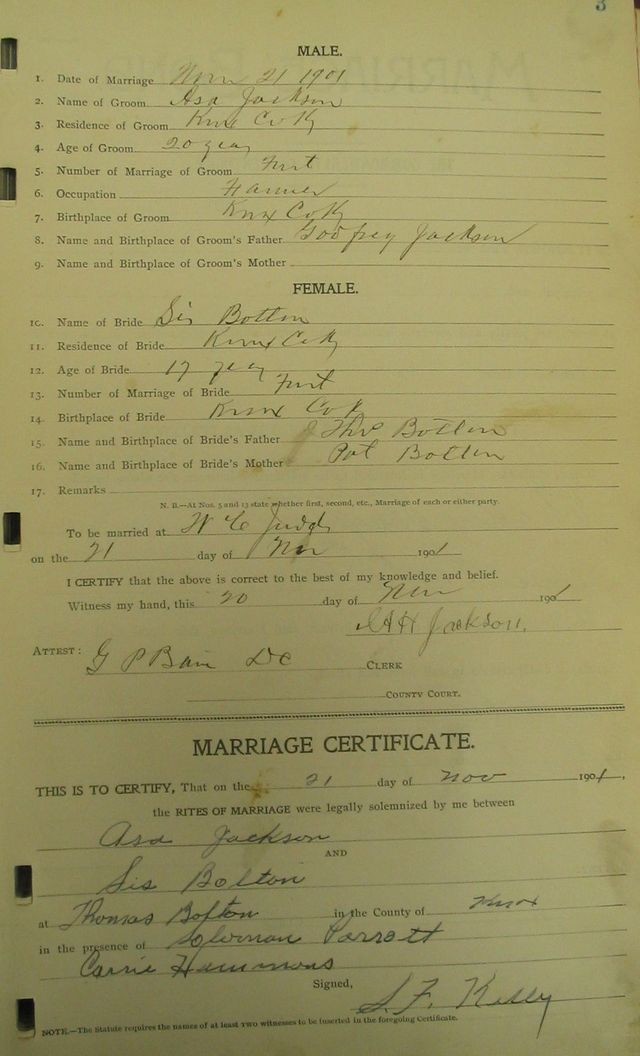 3
MALE.
1. Date of Marriage Nov 21 1901
2. Name of Groom Asa Jackson
3. Residence of Groom Knox Co Ky
4. Age of Groom 20 year
5. Number of Marriage of Groom First
6. Occupation Farmer
7. Birthplace of Groom Knox Co Ky
8. Name and Birthplace of Groom's Father Godfrey Jackson
9. Name and Birthplace of Groom's Mother
FEMALE.
10. Name of Bride Sis Bolton
11. Residence of Bride Knox Co Ky
12. Age of Bride 17 year
13. Number of Marriage of Bride First
14. Birthplace of Bride Knox Co K
15. Name and Birthplace of Bride's Father Thos Bolton
16. Name and Birthplace of Bride's Mother Pat Bolton
17. Remarks
N. B.—At Nos. 5 and 13 state whether first, second, etc., Marriage of each or either party.
To be married at
on the 21 day of Nov 1901
I CERTIFY that the above is correct to the best of my knowledge and belief.
Witness my hand, this 20 day of Nov 1901
Jackson.
ATTEST: G P Bain DC CLERK
COUNTY COURT.
MARRIAGE CERTIFICATE.
THIS IS TO CERTIFY, That on the 21 day of Nov 1901,
the RITES OF MARRIAGE were legally solemnized by me between
Asa Jackson
AND
Sis Bolton
at Thomas Bolton in the County of Knox
in the presence of Solomon Parrott
Carrie Hammons
Signed,
S. F. Kelly
NOTE.—The Statute requires the names of at least two witnesses to be inserted in the foregoing Certificate.